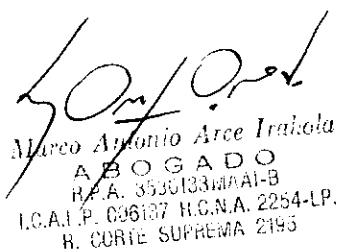 Marco Antonio Arce Irahola
ABOGADO
R.P.A. 3530133MAA1-B
I.C.A.L.P. 006137 H.C.N.A. 2254-LP.
R. CORTE SUPREMA 2195